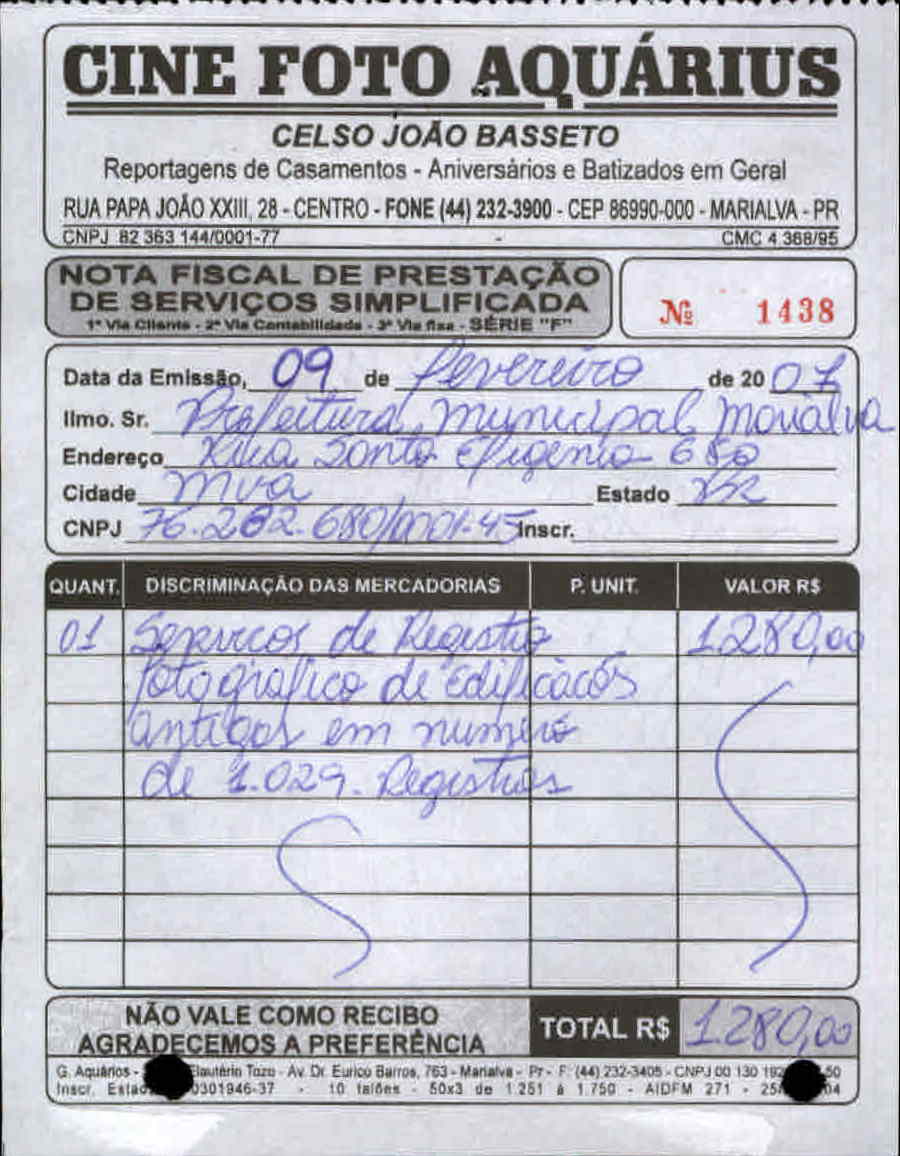 CINE FOTO AQUÁRIUS
CELSO JOÃO BASSETO
Reportagens de Casamentos - Aniversários e Batizados em Geral
RUA PAPA JOÃO XXIII, 28 - CENTRO - FONE (44) 232-3900 - CEP 86990-000 - MARIALVA - PR
CNPJ 82 363 144/0001-77 CMC 4.368/95
NOTA FISCAL DE PRESTAÇÃO
DE SERVIÇOS SIMPLIFICADA
1ª Via Cliente - 2ª Via Contabilidade - 3ª Via fixa - SÉRIE "F"
Nº 1438
Data da Emissão, 09 de fevereiro de 2007
Ilmo. Sr. Prefeitura Municipal Marialva
Endereço Rua Santa Efigenia 680
Cidade Mva Estado PR
CNPJ 76.282.680/0001-45 Inscr.
QUANT. DISCRIMINAÇÃO DAS MERCADORIAS P. UNIT. VALOR R$
01 Serviços de Registro 1.280,00
fotografico de Edificacões
antigas em numero
de 1.029. Registros
NÃO VALE COMO RECIBO
AGRADECEMOS A PREFERÊNCIA
TOTAL R$ 1.280,00
G. Aquários - Tozo - Av. Dr. Eurico Barros, 763 - Marialva - Pr - F: (44) 232-3405 - CNPJ 00 130 50
Inscr. 0301946-37 - 10 talões - 50x3 de 1.251 à 1.750 - AIDFM 271 - 04